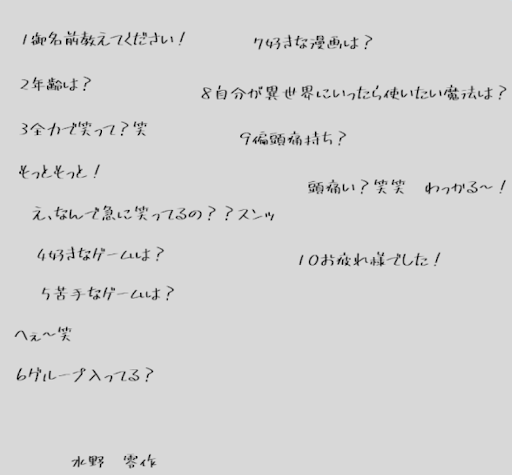 1御名前教えてください!
2年齢は?
3全力で笑って?笑
もっともっと!
え、なんで急に笑ってるの??スンッ
4好きなゲームは?
5苦手なゲームは?
へぇ〜笑
6グループ入ってる?
7好きな漫画は?
8自分が異世界にいったら使いたい魔法は?
9偏頭痛持ち?
頭痛い?笑笑 わっかる〜!
10お疲れ様でした!
水野 零作